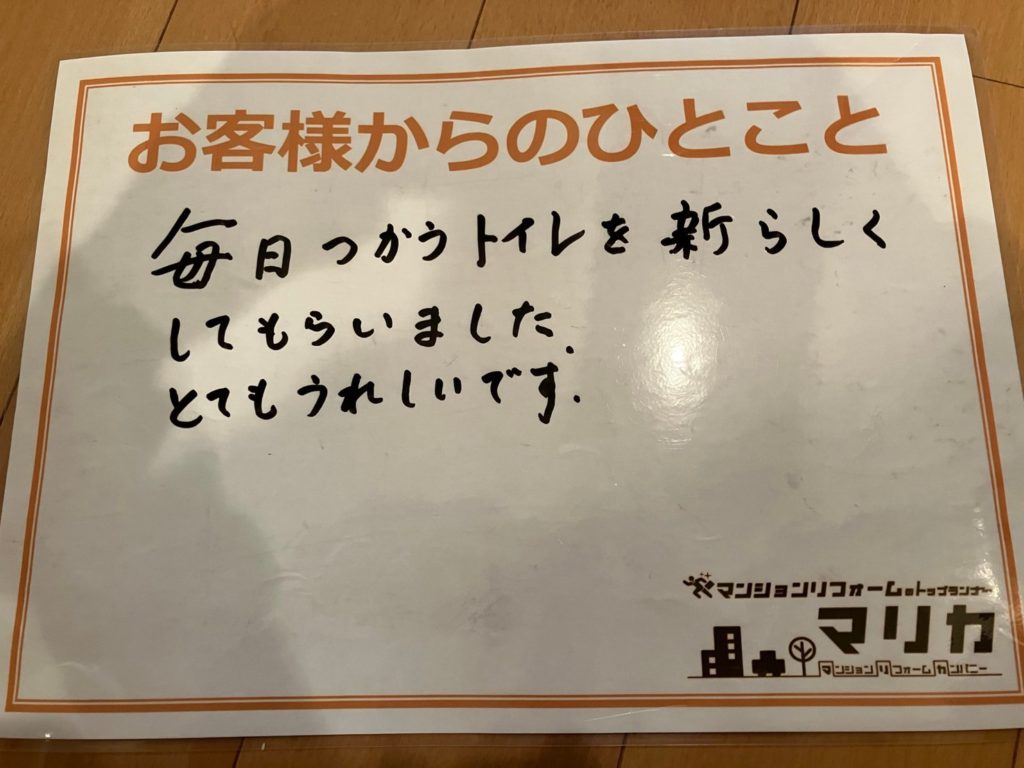 お客様からのひとこと
毎日つかうトイレを新らしく
してもらいました.
とてもうれしいです.
マンションリフォームのトップランナー
マリカ
マンションリフォームカンパニー